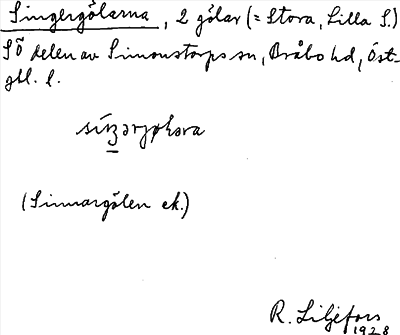 Singergölarna, 2 gölar (= Stora, Lilla S.)
SÖ delen av Simonstorps sn, Bråbo hd, Öst-
gtl. l.
(Simmargölen ek.)
R. Liljefors
1928